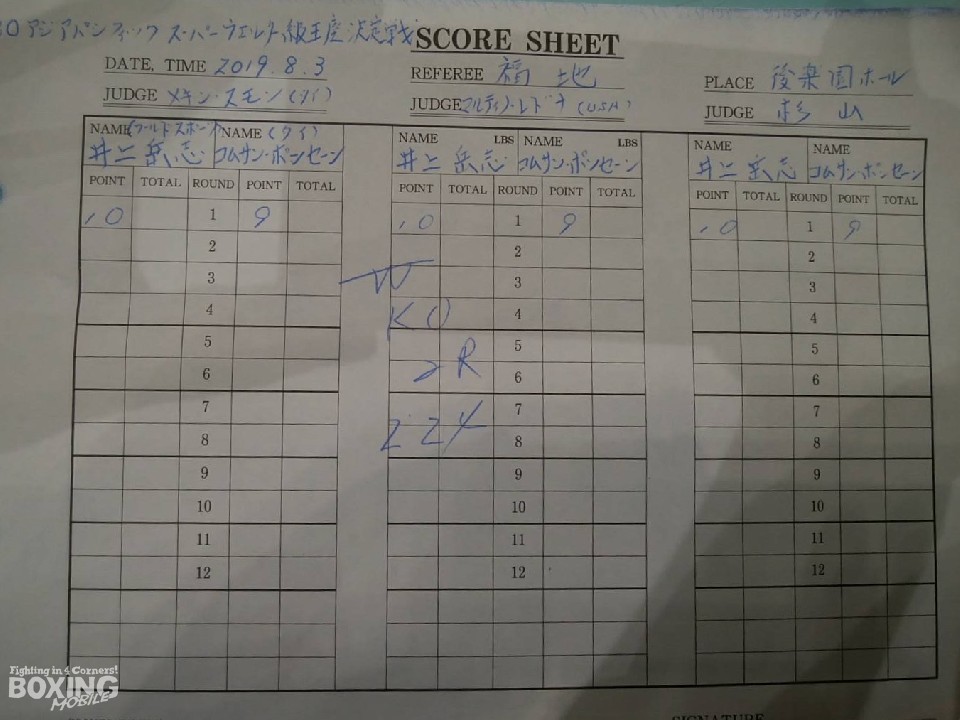 アジアパシフィック スーパーウェルト級王座決定戦
SCORE SHEET
DATE, TIME 2019.8.3
REFEREE 福地
PLACE 後楽園ホール
JUDGE メキン・スモン(タイ)
JUDGE (USA)
JUDGE 杉山
NAME (ワールドスポーツ) NAME (タイ)
井上岳志 コムサン・ポンセーン
POINT TOTAL ROUND POINT TOTAL
10 1 9
2
3
4
5
6
7
8
9
10
11
12
NAME LBS NAME LBS
井上岳志 コムサン・ポンセーン
POINT TOTAL ROUND POINT TOTAL
10 1 9
2
3
4
5
6
7
8
9
10
11
12
W
KO
2R
NAME NAME
井上岳志 コムサンポンセーン
POINT TOTAL ROUND POINT TOTAL
10 1 9
2
3
4
5
6
7
8
9
10
11
12
Fighting in 4 Corners!
BOXING
MOBILE
SIGNATURE